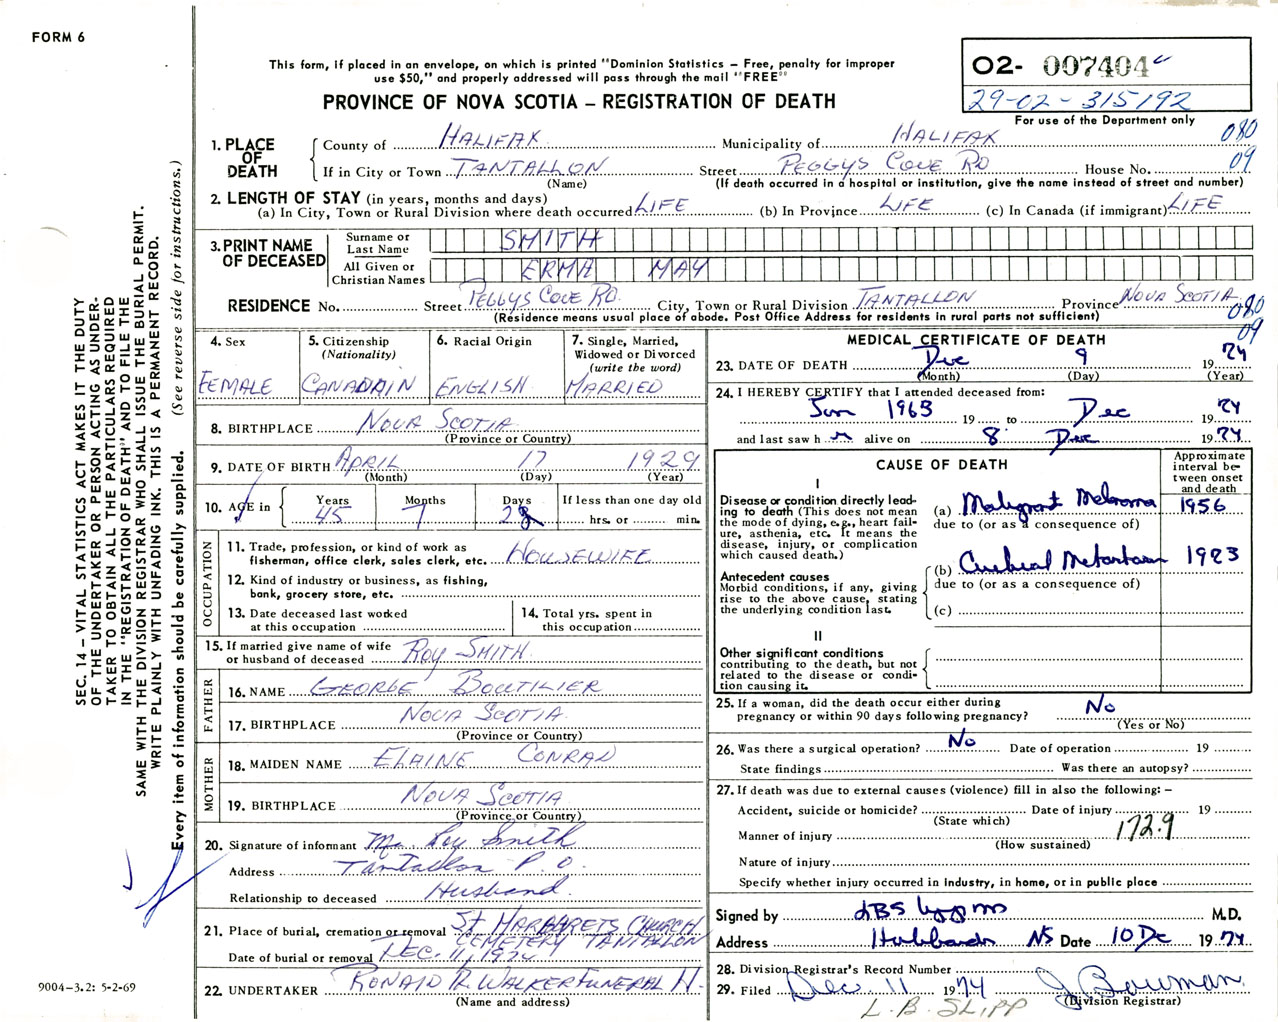 FORM 6
This form, if placed in an envelope, on which is printed "Dominion Statistics – Free, penalty for improper
use $50," and properly addressed will pass through the mail "FREE"
PROVINCE OF NOVA SCOTIA – REGISTRATION OF DEATH
02- 007404
29-02-315192
For use of the Department only
1. PLACE OF DEATH
County of HALIFAX Municipality of HALIFAX 080
If in City or Town TANTALLON Street PEGGYS COVE RD House No. 09
(Name) (If death occurred in a hospital or institution, give the name instead of street and number)
2. LENGTH OF STAY (in years, months and days)
(a) In City, Town or Rural Division where death occurred LIFE (b) In Province LIFE (c) In Canada (if immigrant) LIFE
3. PRINT NAME OF DECEASED
Surname or Last Name SMITH
All Given or Christian Names ERMA MAY
RESIDENCE No. Street PEGGYS COVE RD. City, Town or Rural Division TANTALLON Province NOVA SCOTIA 080
(Residence means usual place of abode. Post Office Address for residents in rural parts not sufficient) 09
4. Sex
FEMALE
5. Citizenship
(Nationality)
CANADAIN
6. Racial Origin
ENGLISH
7. Single, Married,
Widowed or Divorced
(write the word)
MARRIED
8. BIRTHPLACE NOVA SCOTIA
(Province or Country)
9. DATE OF BIRTH APRIL 17 1929
(Month) (Day) (Year)
10. AGE in Years Months Days If less than one day old
45 7 hrs. or min.
OCCUPATION
11. Trade, profession, or kind of work as
fisherman, office clerk, sales clerk, etc. HOUSEWIFE
12. Kind of industry or business, as fishing,
bank, grocery store, etc.
13. Date deceased last worked
at this occupation
14. Total yrs. spent in
this occupation
15. If married give name of wife
or husband of deceased ROY SMITH
FATHER
16. NAME GEORGE BOUTILIER
17. BIRTHPLACE NOVA SCOTIA
(Province or Country)
MOTHER
18. MAIDEN NAME ELAINE CONRAD
19. BIRTHPLACE NOVA SCOTIA
(Province or Country)
20. Signature of informant Mr. Roy Smith
Address Tantallon P.O.
Relationship to deceased Husband.
21. Place of burial, cremation or removal ST MARGARETS CHURCH
CEMETERY TANTALLON
Date of burial or removal DEC. 11, 1974
22. UNDERTAKER RONALD R. WALKER FUNERAL H.
(Name and address)
MEDICAL CERTIFICATE OF DEATH
23. DATE OF DEATH Dec 9 19 74
(Month) (Day) (Year)
24. I HEREBY CERTIFY that I attended deceased from:
Jan 1963 19 to Dec 19 74
and last saw h er alive on 8 Dec 19 74
CAUSE OF DEATH
Approximate
interval be-
tween onset
and death
I
Disease or condition directly lead-
ing to death (This does not mean
the mode of dying, e.g., heart fail-
ure, asthenia, etc. It means the
disease, injury, or complication
which caused death.)
(a) Malignant Melanoma 1956
due to (or as a consequence of)
Antecedent causes
Morbid conditions, if any, giving
rise to the above cause, stating
the underlying condition last.
(b) Cerebral Metastases
due to (or as a consequence of)
(c)
II
Other significant conditions
contributing to the death, but not
related to the disease or condi-
tion causing it.
25. If a woman, did the death occur either during
pregnancy or within 90 days following pregnancy? No
(Yes or No)
26. Was there a surgical operation? No Date of operation 19
State findings Was there an autopsy?
27. If death was due to external causes (violence) fill in also the following: –
Accident, suicide or homicide? Date of injury 19
(State which)
172.9
Manner of injury
(How sustained)
Nature of injury
Specify whether injury occurred in industry, in home, or in public place
Signed by M.D.
Address Hubbards NS Date 10 Dc 19 74
28. Division Registrar's Record Number
29. Filed Dec 11 1974 J Bowman
(Division Registrar)
L. B. SLIPP
SEC. 14 – VITAL STATISTICS ACT MAKES IT THE DUTY
OF THE UNDERTAKER OR PERSON ACTING AS UNDER-
TAKER TO OBTAIN ALL THE PARTICULARS REQUIRED
IN THE "REGISTRATION OF DEATH" AND TO FILE THE
SAME WITH THE DIVISION REGISTRAR WHO SHALL ISSUE THE BURIAL PERMIT.
WRITE PLAINLY WITH UNFADING INK. THIS IS A PERMANENT RECORD.
Every item of information should be carefully supplied. (See reverse side for instructions.)
9004-3.2: 5-2-69